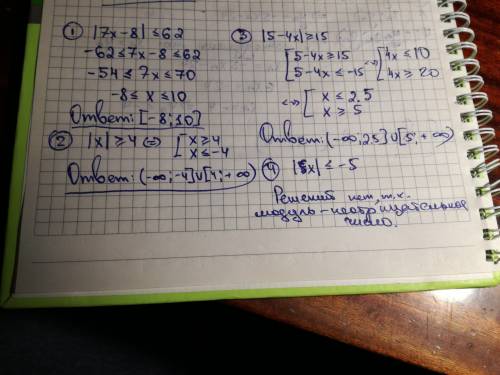 ① |7x-8| ≤ 62
-62 ≤ 7x-8 ≤ 62
-54 ≤ 7x ≤ 70
-8 ≤ x ≤ 10
Ответ: [-8; 10]
② |x| ≥ 4 (=) [x ≥ 4
x ≤ -4
Ответ: (-∞; -4] U [4; +∞)
③ |5-4x| ≥ 15
[5-4x ≥ 15 <=> [4x ≤ 10
5-4x ≤ -15 4x ≥ 20
<=> [x ≤ 2.5
x ≥ 5
Ответ: (-∞; 2.5] U [5; +∞)
④ |5x| ≤ -5
Решений нет, т.к.
модуль - неотрицательное
число.